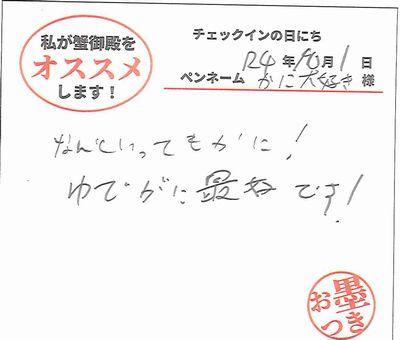 私が蟹御殿を
オススメ
します！
チェックインの日にち
R4年10月1日
ペンネーム かに大好き 様
なんといってもかに！
ゆでがに最高です！
お墨
つき